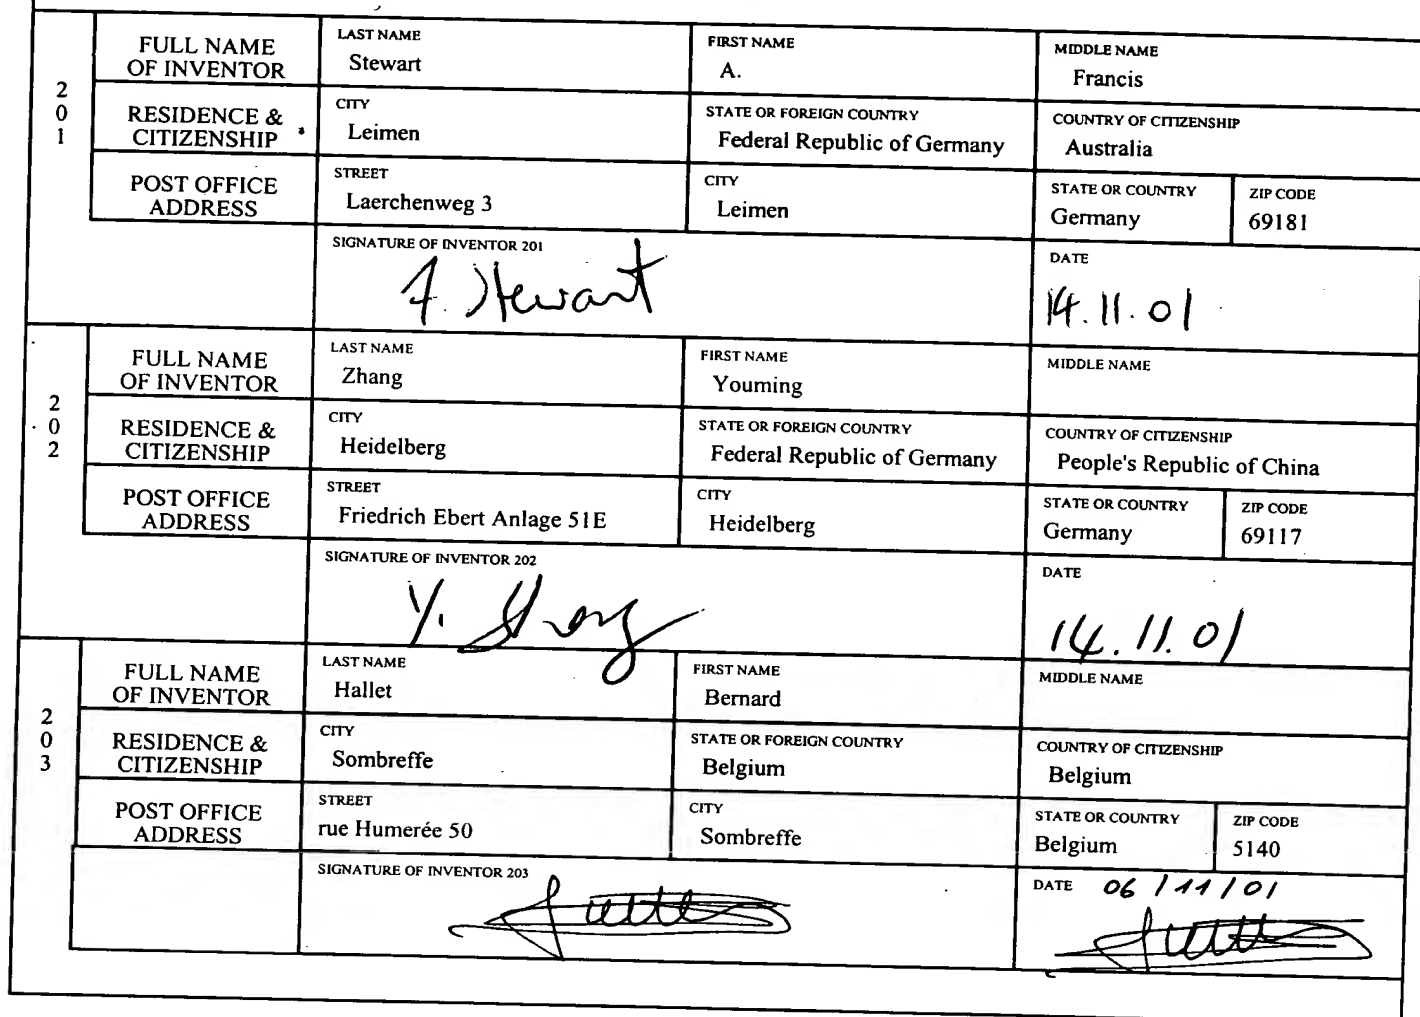 201
FULL NAME OF INVENTOR
LAST NAME
Stewart
FIRST NAME
A.
MIDDLE NAME
Francis
RESIDENCE & CITIZENSHIP
CITY
Leimen
STATE OR FOREIGN COUNTRY
Federal Republic of Germany
COUNTRY OF CITIZENSHIP
Australia
POST OFFICE ADDRESS
STREET
Laerchenweg 3
CITY
Leimen
STATE OR COUNTRY
Germany
ZIP CODE
69181
SIGNATURE OF INVENTOR 201
F. Stewart
DATE
14.11.01
202
FULL NAME OF INVENTOR
LAST NAME
Zhang
FIRST NAME
Youming
MIDDLE NAME
RESIDENCE & CITIZENSHIP
CITY
Heidelberg
STATE OR FOREIGN COUNTRY
Federal Republic of Germany
COUNTRY OF CITIZENSHIP
People's Republic of China
POST OFFICE ADDRESS
STREET
Friedrich Ebert Anlage 51E
CITY
Heidelberg
STATE OR COUNTRY
Germany
ZIP CODE
69117
SIGNATURE OF INVENTOR 202
Y. Zhang
DATE
14.11.01
203
FULL NAME OF INVENTOR
LAST NAME
Hallet
FIRST NAME
Bernard
MIDDLE NAME
RESIDENCE & CITIZENSHIP
CITY
Sombreffe
STATE OR FOREIGN COUNTRY
Belgium
COUNTRY OF CITIZENSHIP
Belgium
POST OFFICE ADDRESS
STREET
rue Humerée 50
CITY
Sombreffe
STATE OR COUNTRY
Belgium
ZIP CODE
5140
SIGNATURE OF INVENTOR 203
DATE 06/11/01